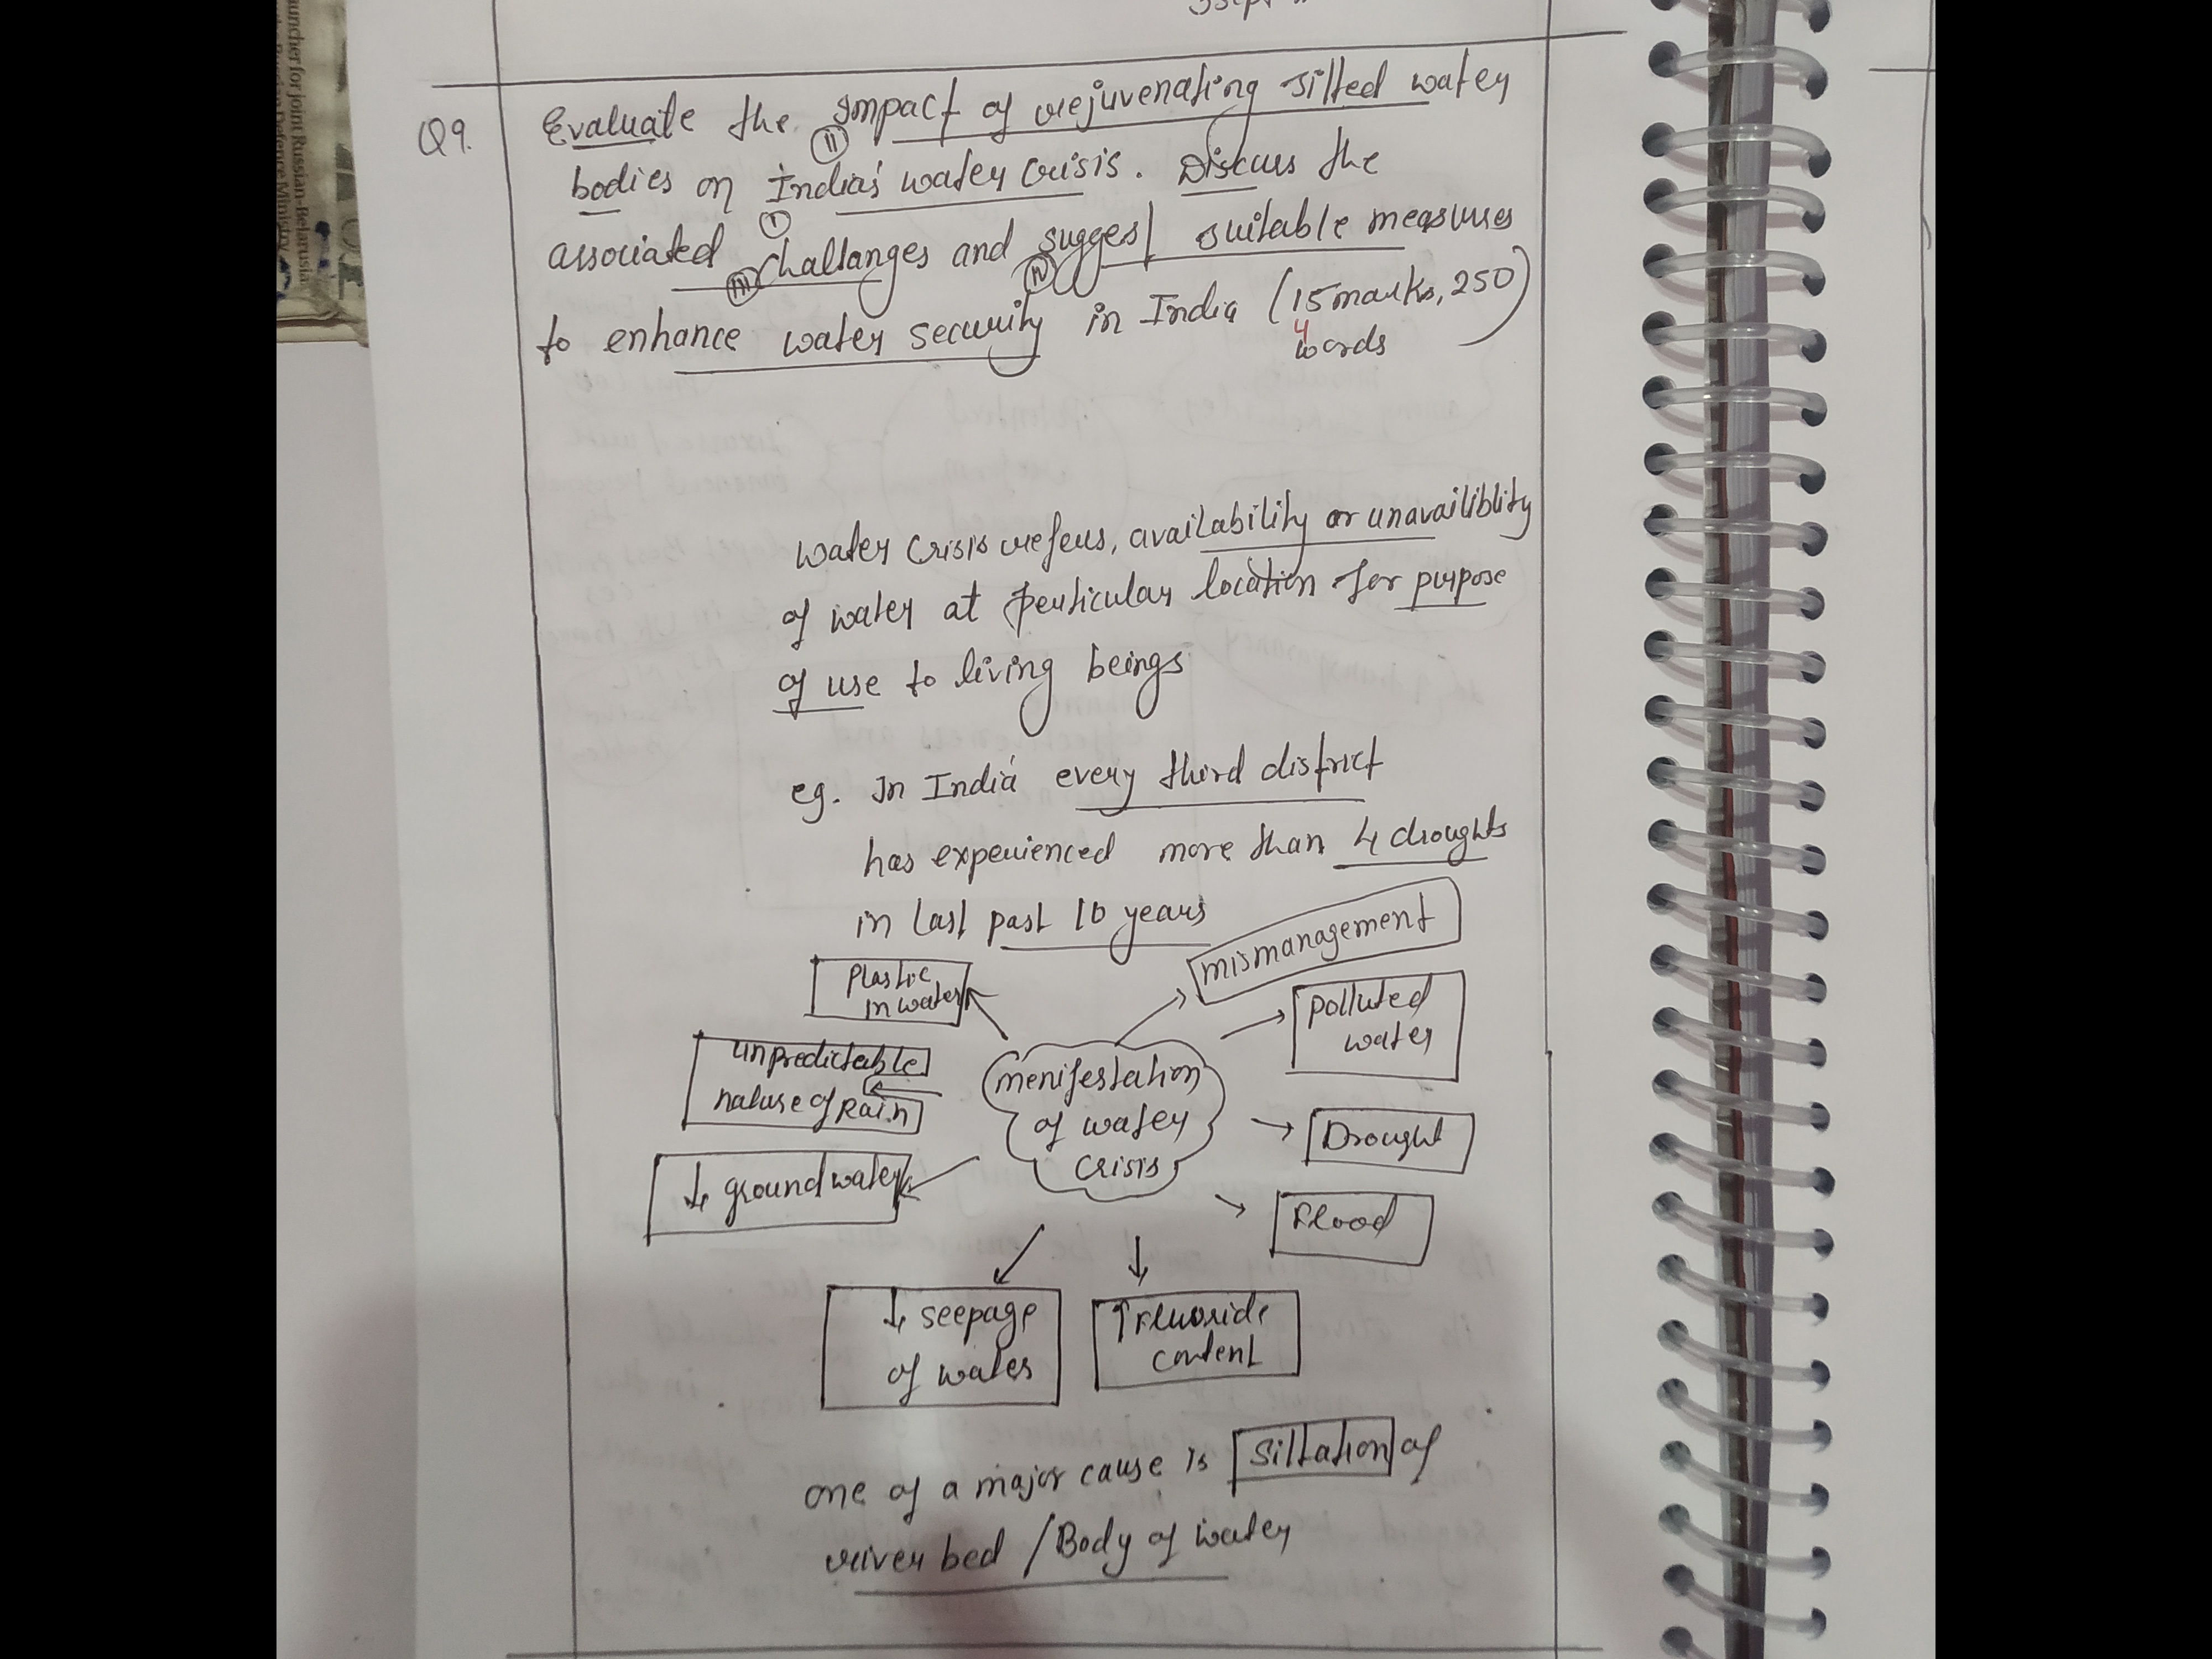 auncher for joint Russian-Belarusia
Russian Defence Ministry
Q9. Evaluate the impact of rejuvenating silted water
II
bodies on India's water crisis. Discuss the
I
associated challanges and suggest suitable measures
III IV
to enhance water security in India (15 marks, 250
4
words)
water crisis refers, availability or unavailiblity
of water at perticular location for purpose
of use to living beings
eg. In India every third district
has experienced more than 4 droughts
in last past 10 years
mismanagement
Plastic
in water
Polluted
water
unpredictable
nature of Rain
menifestation
of water
crisis
Drought
↓ ground water
Flood
↓ seepage
of water
↑ Fluoride
content
one of a major cause is siltation of
river bed / Body of water